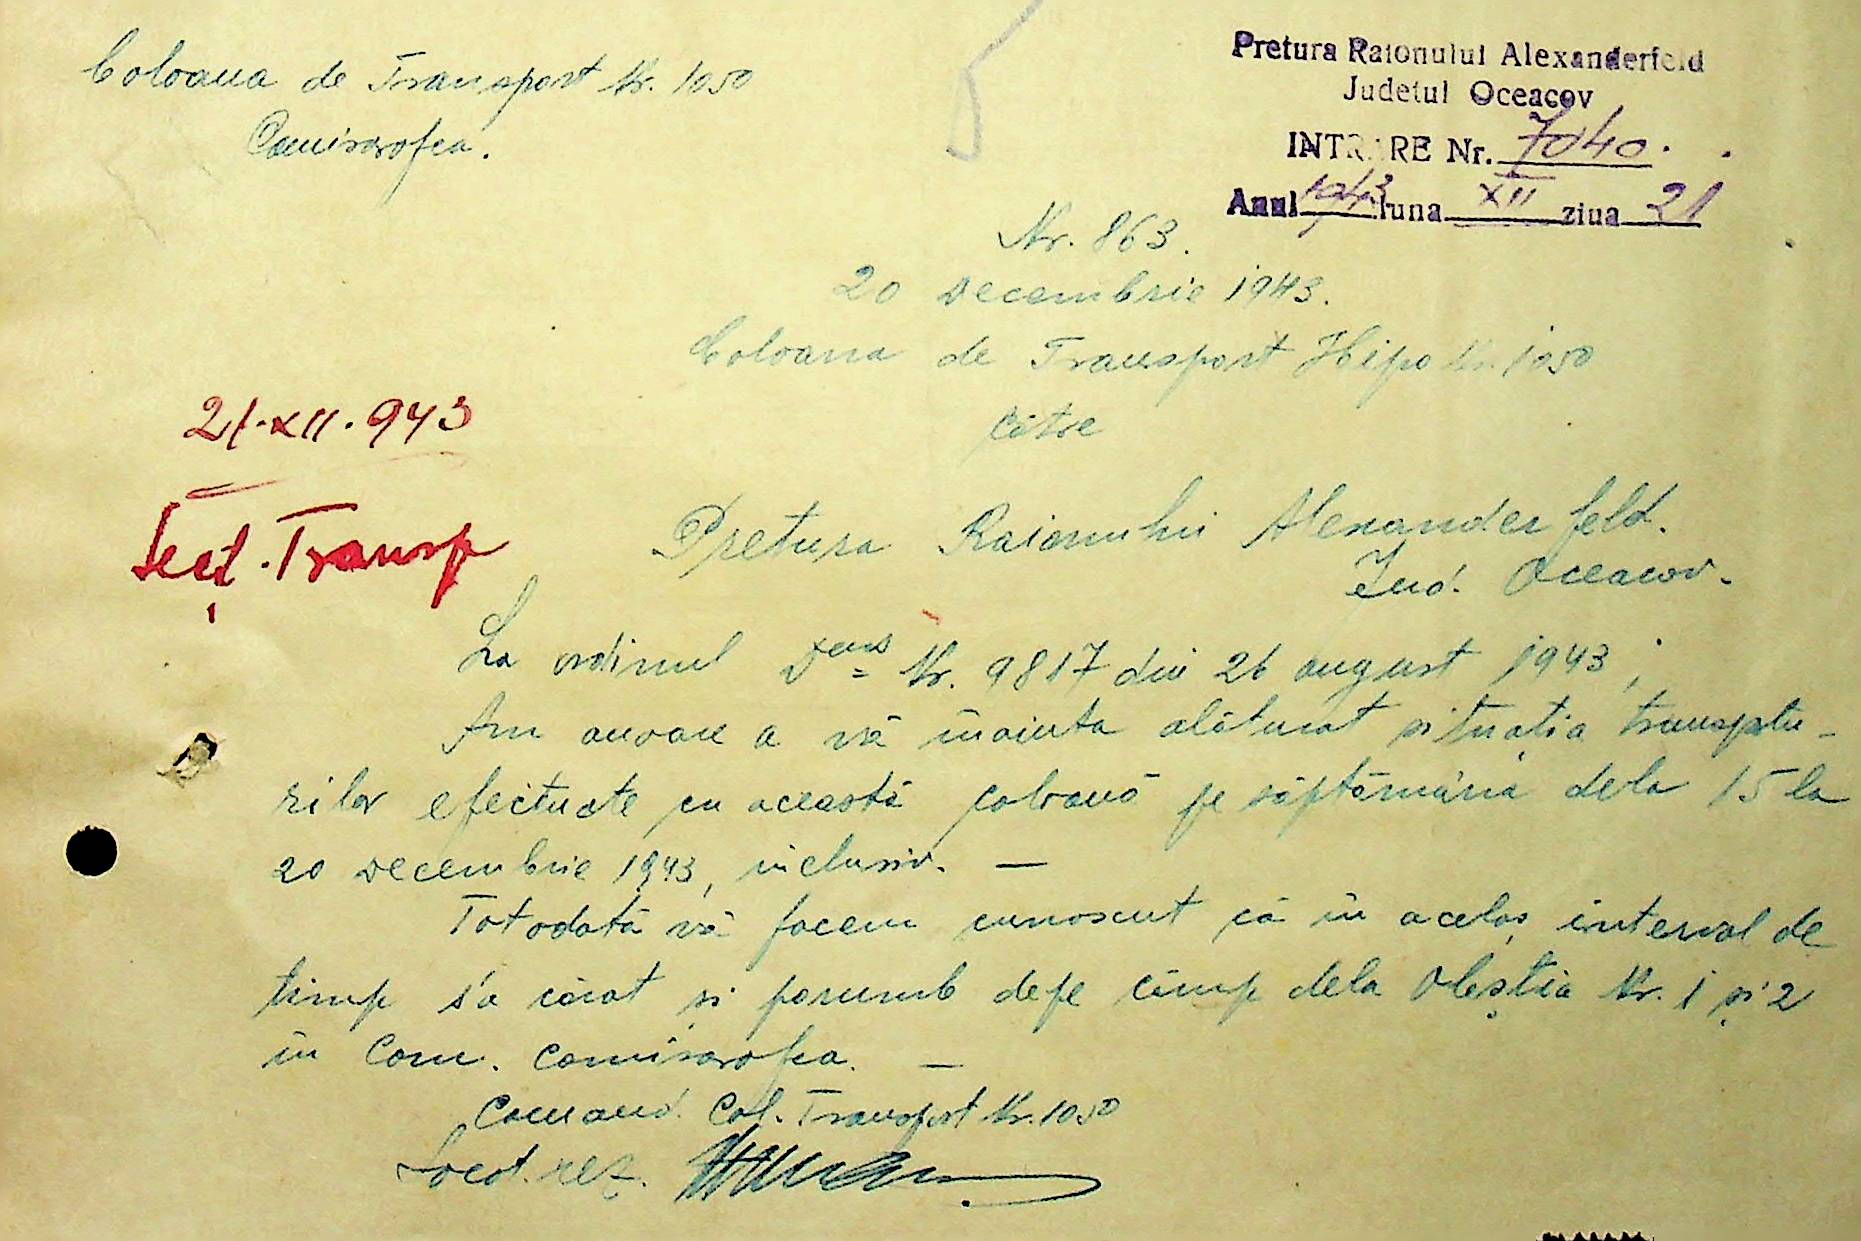 Coloana de Transport Nr. 1050
Comisarofca.
Pretura Raionului Alexanderfeld
Judetul Oceacov
INTRARE Nr. 7040.
Anul 1943 luna XII ziua 21
Nr. 863.
20 Decembrie 1943.
Coloana de Transport Hipo Nr. 1050
către
21.XII.943
Secț. Transp
Pretura Raionului Alexanderfeld.
Jud. Oceacov.
La ordinul Dvs Nr. 9817 din 26 august 1943,
Am onoare a vă înainta alăturat situația transportu-
rilor efectuate cu această coloană pe săptămâna dela 15 la
20 Decembrie 1943, inclusiv. —
Totodată vă facem cunoscut că în acelaș interval de
timp s'a cărat și porumb depe câmp dela Obeștia Nr. 1 și 2
în Com. Comisarofca. —
Comand. Col. Transport Nr. 1050
Locot. rez.